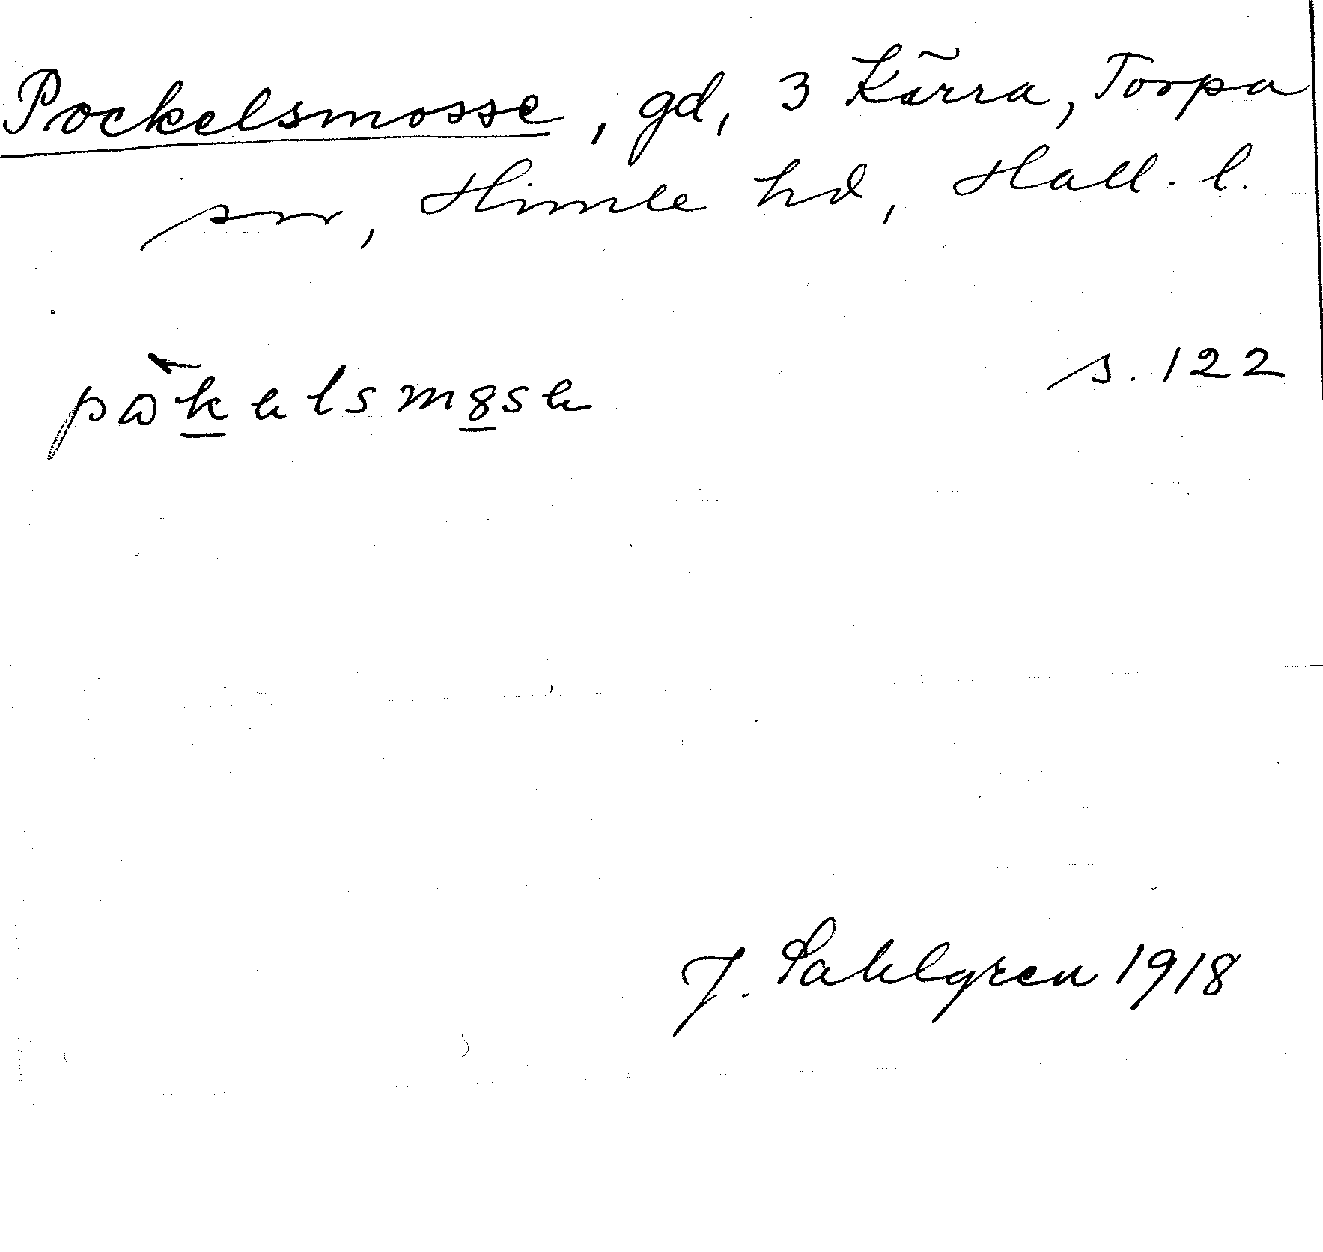 Pockelsmosse, gd, 3 Kärra, Torpa
sn, Himle hd, Hall. l.
s. 122
J. Sahlgren 1918